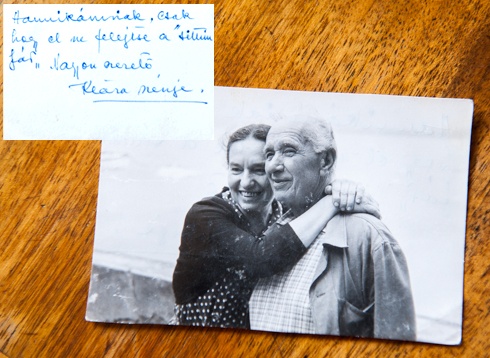 Hannikámnak, csak
hogy el ne felejtse a
Nagyon szerető
Klára nénje.